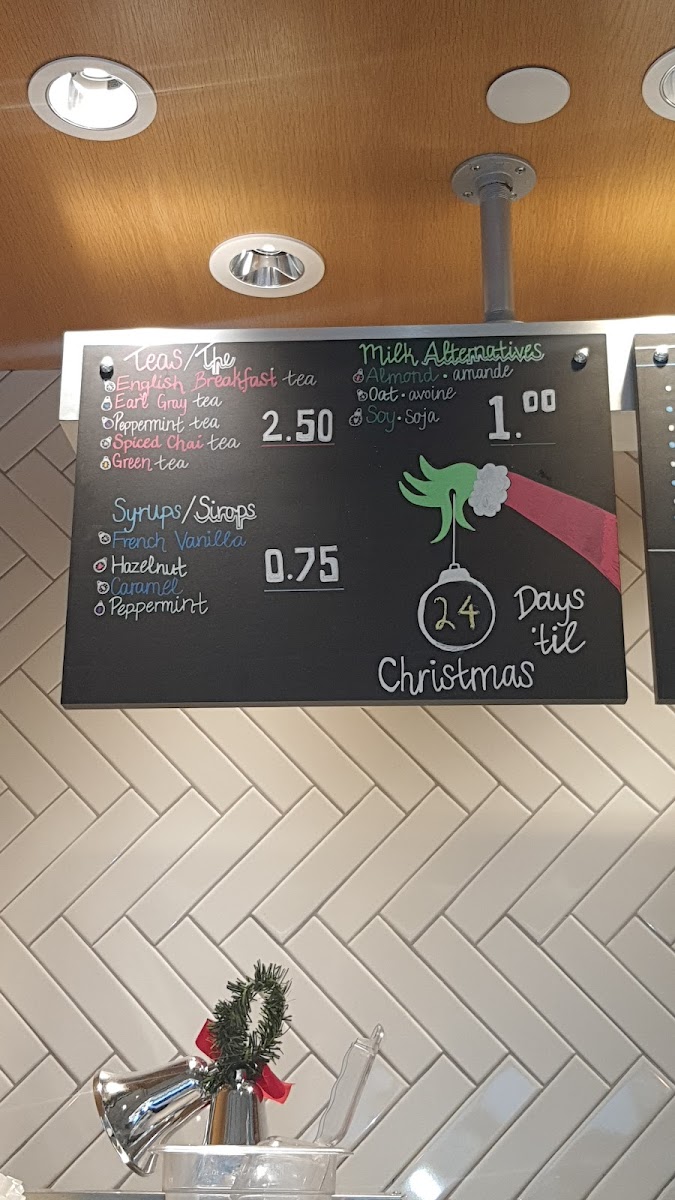 Teas/The
English Breakfast tea
Earl Gray tea
Peppermint tea
Spiced Chai tea
Green tea
2.50
Syrups/Sirops
French Vanilla
Hazelnut
Caramel
Peppermint
0.75
Milk Alternatives
Almond · amande
Oat · avoine
Soy · soja
1.00
24 Days
'til
Christmas